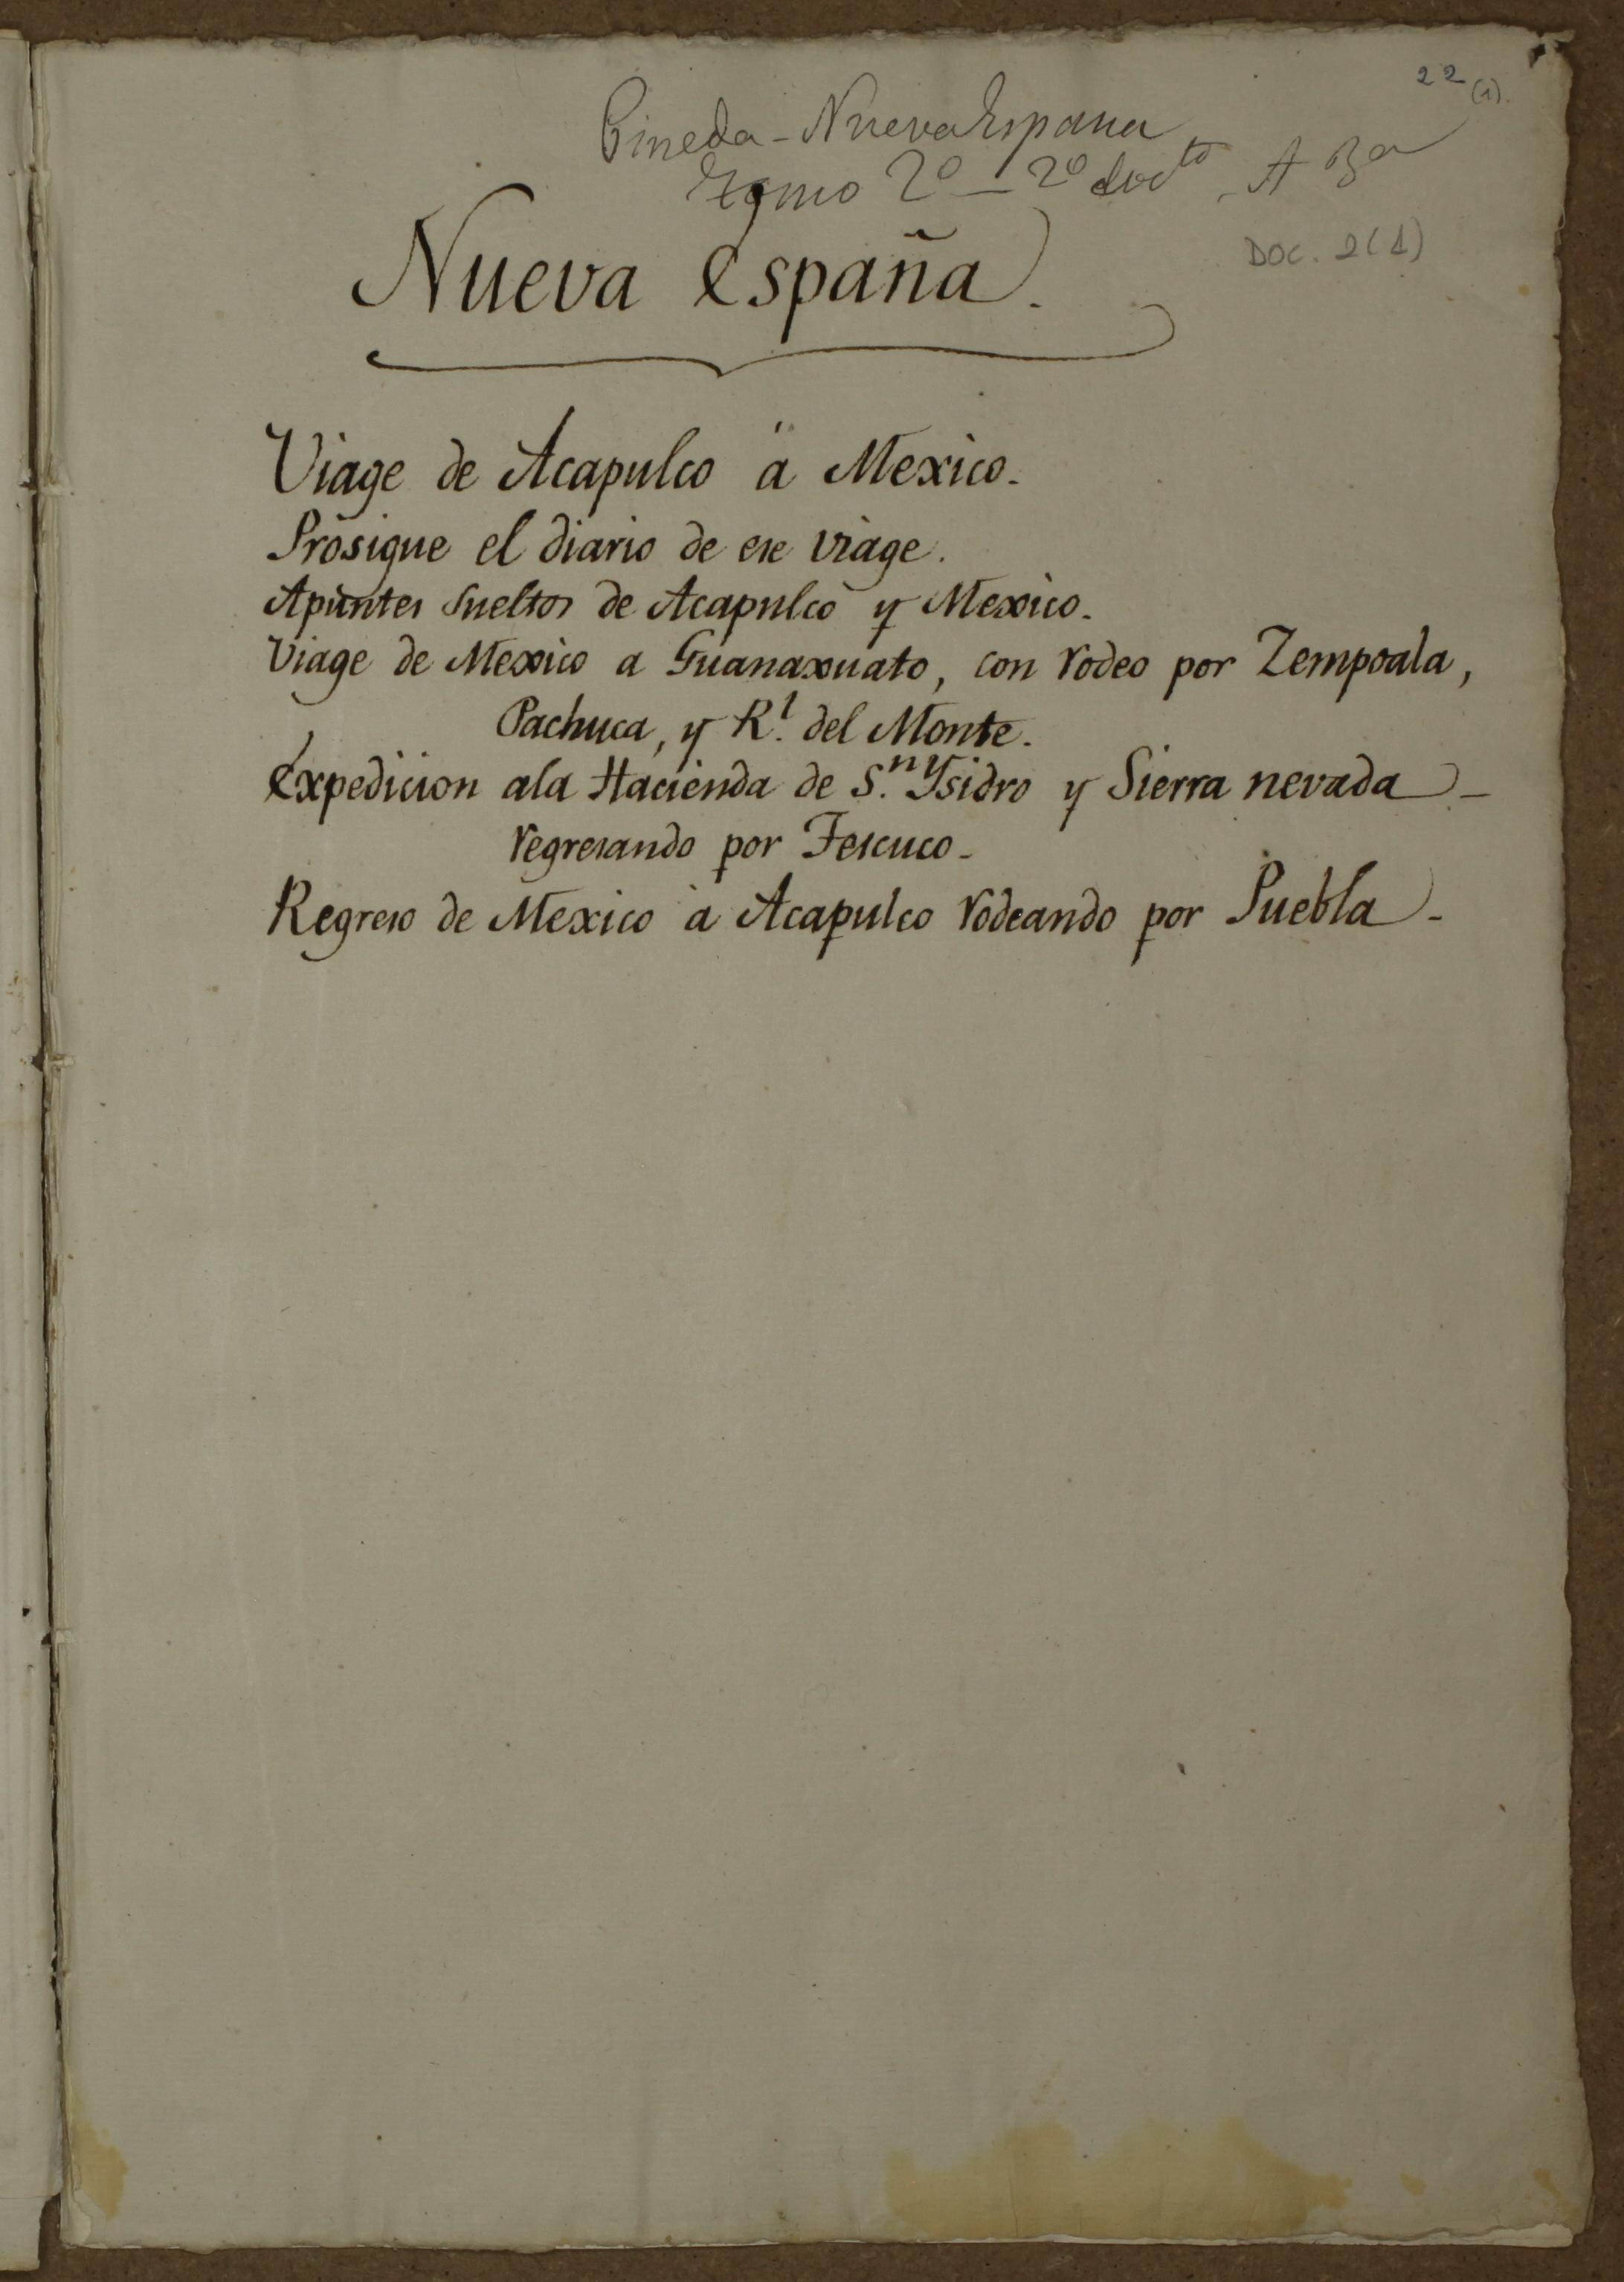 22 (1).
Pineda - Nueva España
tomo 2º - 2º docto - A 3a
DOC. 2(1)
Nueva España.
Viage de Acapulco á Mexico.
Prosigue el diario de ese viage.
Apuntes sueltos de Acapulco y Mexico.
Viage de Mexico a Guanaxuato, con rodeo por Zempoala,
Pachuca, y Rl. del Monte.
Expedicion ala Hacienda de Sn. Ysidro y Sierra nevada -
regresando por Tescuco -
Regreso de Mexico à Acapulco rodeando por Puebla -